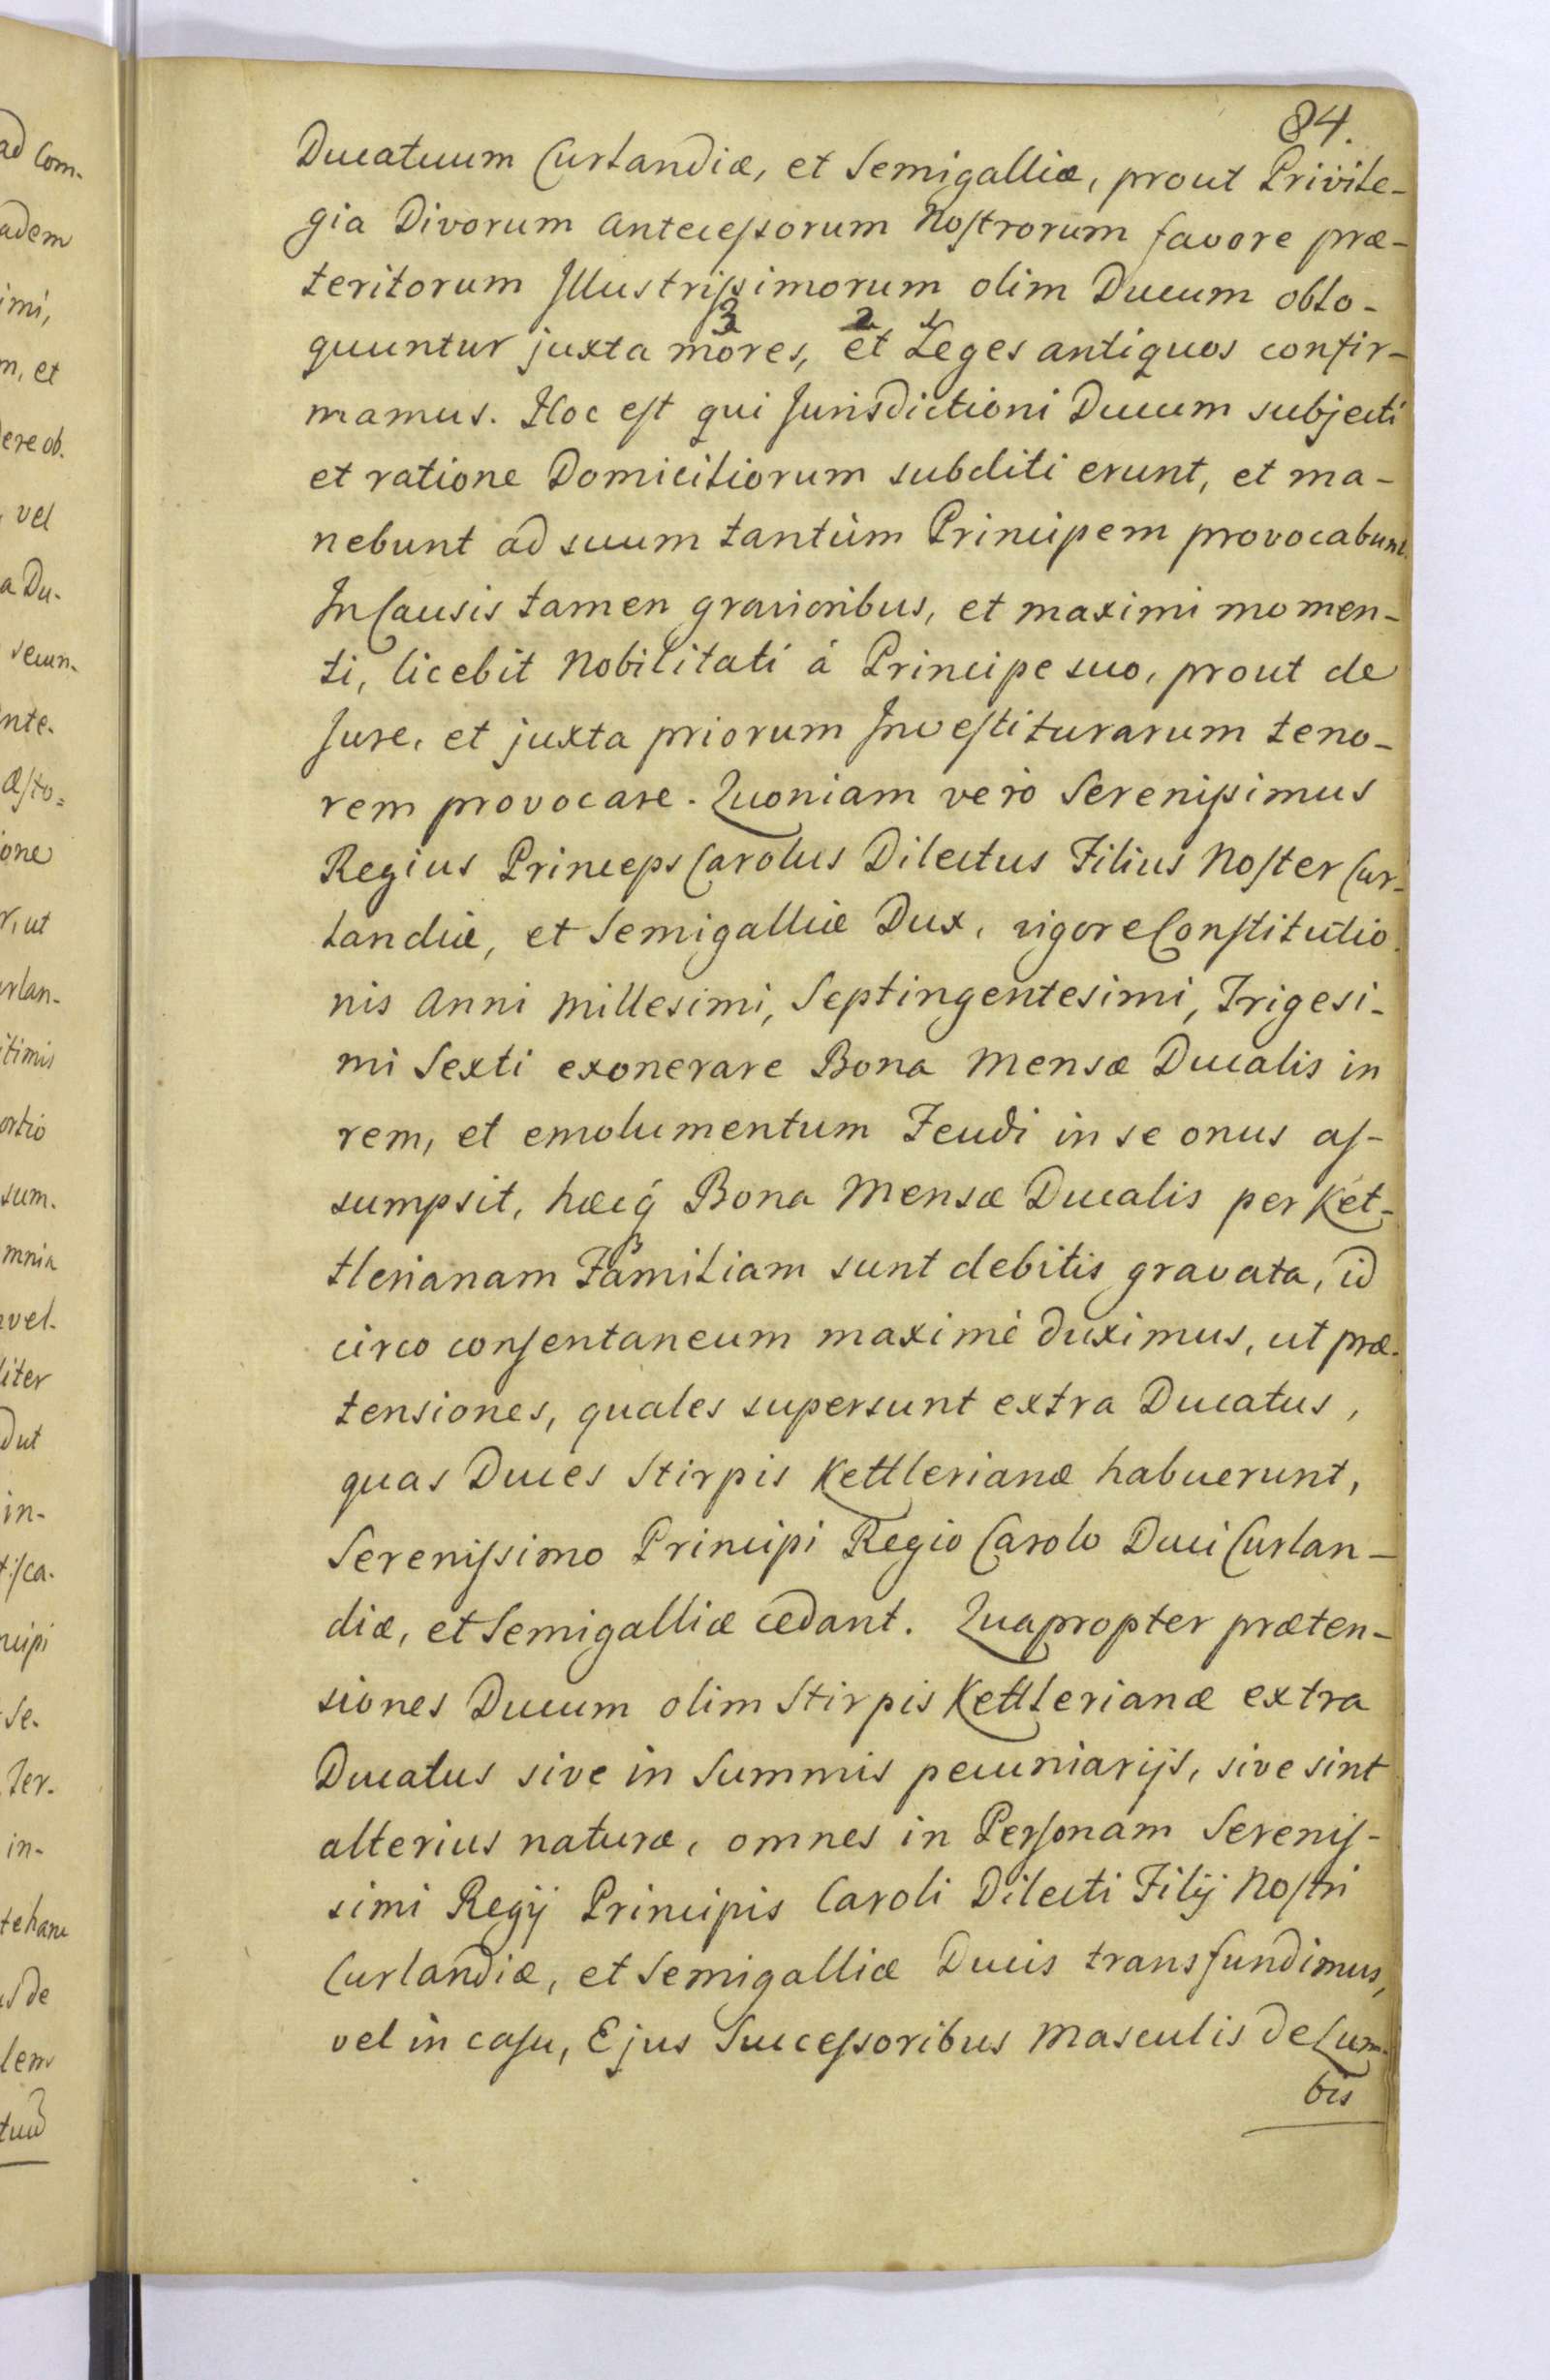 84.
Ducatuum Curlandiæ, et Semigalliæ, prout Privile-
gia Divorum Antecessorum Nostrorum favore præ-
teritorum Illustrissimorum olim Ducum oblo-
3 2 1
quuntur juxta mores, et Leges antiquos confir-
mamus. Hoc est qui Jurisdictioni Ducum subjecti
et ratione Domiciliorum subditi erunt, et ma-
nebunt ad suum tantùm Principem provocabunt.
In Causis tamen gravioribus, et maximi momen-
ti, licebit Nobilitati à Principe suo, prout de
Jure, et juxta priorum Investiturarum teno-
rem provocare. Quoniam verò Serenissimus
Regius Princeps Carolus Dilectus Filius Noster Cur-
landiæ, et Semigalliæ Dux, vigore Constitutio
nis Anni Millesimi, Septingentesimi, Trigesi-
mi Sexti exonerare Bona Mensæ Ducalis in
rem, et emolumentum Feudi in se onus as-
sumpsit, hæcq́ Bona Mensæ Ducalis per Ket-
tlerianam Familiam sunt debitis gravata, id
circo consentaneum maximè duximus, ut præ-
tensiones, quales supersunt extra Ducatus,
quas Duces Stirpis Kettlerianæ habuerunt,
Serenissimo Principi Regio Carolo Duci Curlan-
diæ, et Semigalliæ cedant. Quapropter præten-
siones Ducum olim Stirpis Kettlerianæ extra
Ducatus sive in Summis pecuniarijs, sive sint
alterius naturæ, omnes in Personam Serenis-
simi Regij Principis Caroli Dilecti Filij Nostri
Curlandiæ, et Semigalliæ Ducis transfundimus,
vel in casu, Ejus Successoribus Masculis de Lum-
bis
ad Com-
adem
imi,
m, et
dere ob.
vel
a Du-
secun-
nte-
æsto=
ione
r, ut
urlan-
itimis
ortio
sum.
mnia
vel-
liter
dut
in-
ncipi
Se-
Ter-
in-
te hanc
us de
lem